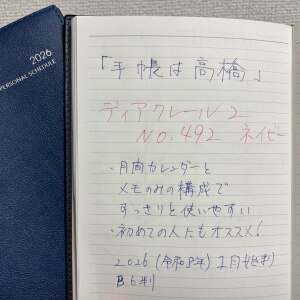 2026
PERSONAL SCHEDULE
「手帳は高橋」
ディアクレール2
NO.492 ネイビー
・月間カレンダーと
メモのみの構成で
すっきりと使いやすい
・初めての人にもオススメ!
2026(令和8年)1月始まり
B6判